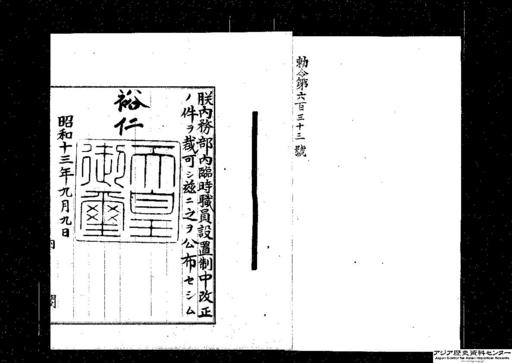 勅令第六百三十三號
朕內務部內臨時職員設置制中改正
ノ件ヲ裁可シ玆ニ之ヲ公布セシム
裕仁
天皇御璽
昭和十三年九月九日
內閣
アジア歴史資料センター
Japan Center for Asian Historical Records